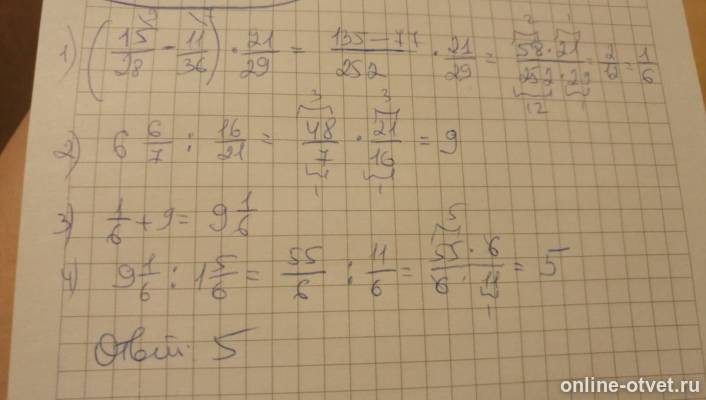 1) (15/28 - 11/36) · 21/29 = 135-77/252 · 21/29 = 58·21/252·29 = 2/12 = 1/6
2) 6 6/7 : 16/21 = 48/7 · 21/16 = 9
3) 1/6 + 9 = 9 1/6
4) 9 1/6 : 1 5/6 = 55/6 : 11/6 = 55·6/6·11 = 5
Ответ: 5
online-otvet.ru